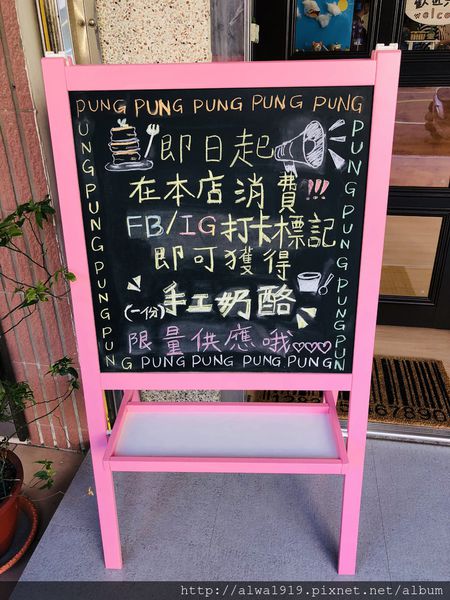 歡迎光
welcome
PUNG PUNG PUNG PUNG PUNG
即日起
在本店消費!!!
FB/IG打卡標記
即可獲得
(一份)手工奶酪
限量供應哦♡♡♡
PUNG PUNG PUNG PUNG
PUNG PUNG PUNG PUNG
PUNG PUNG PUNG PUNG
http://alwa1919.pixnet.net/album